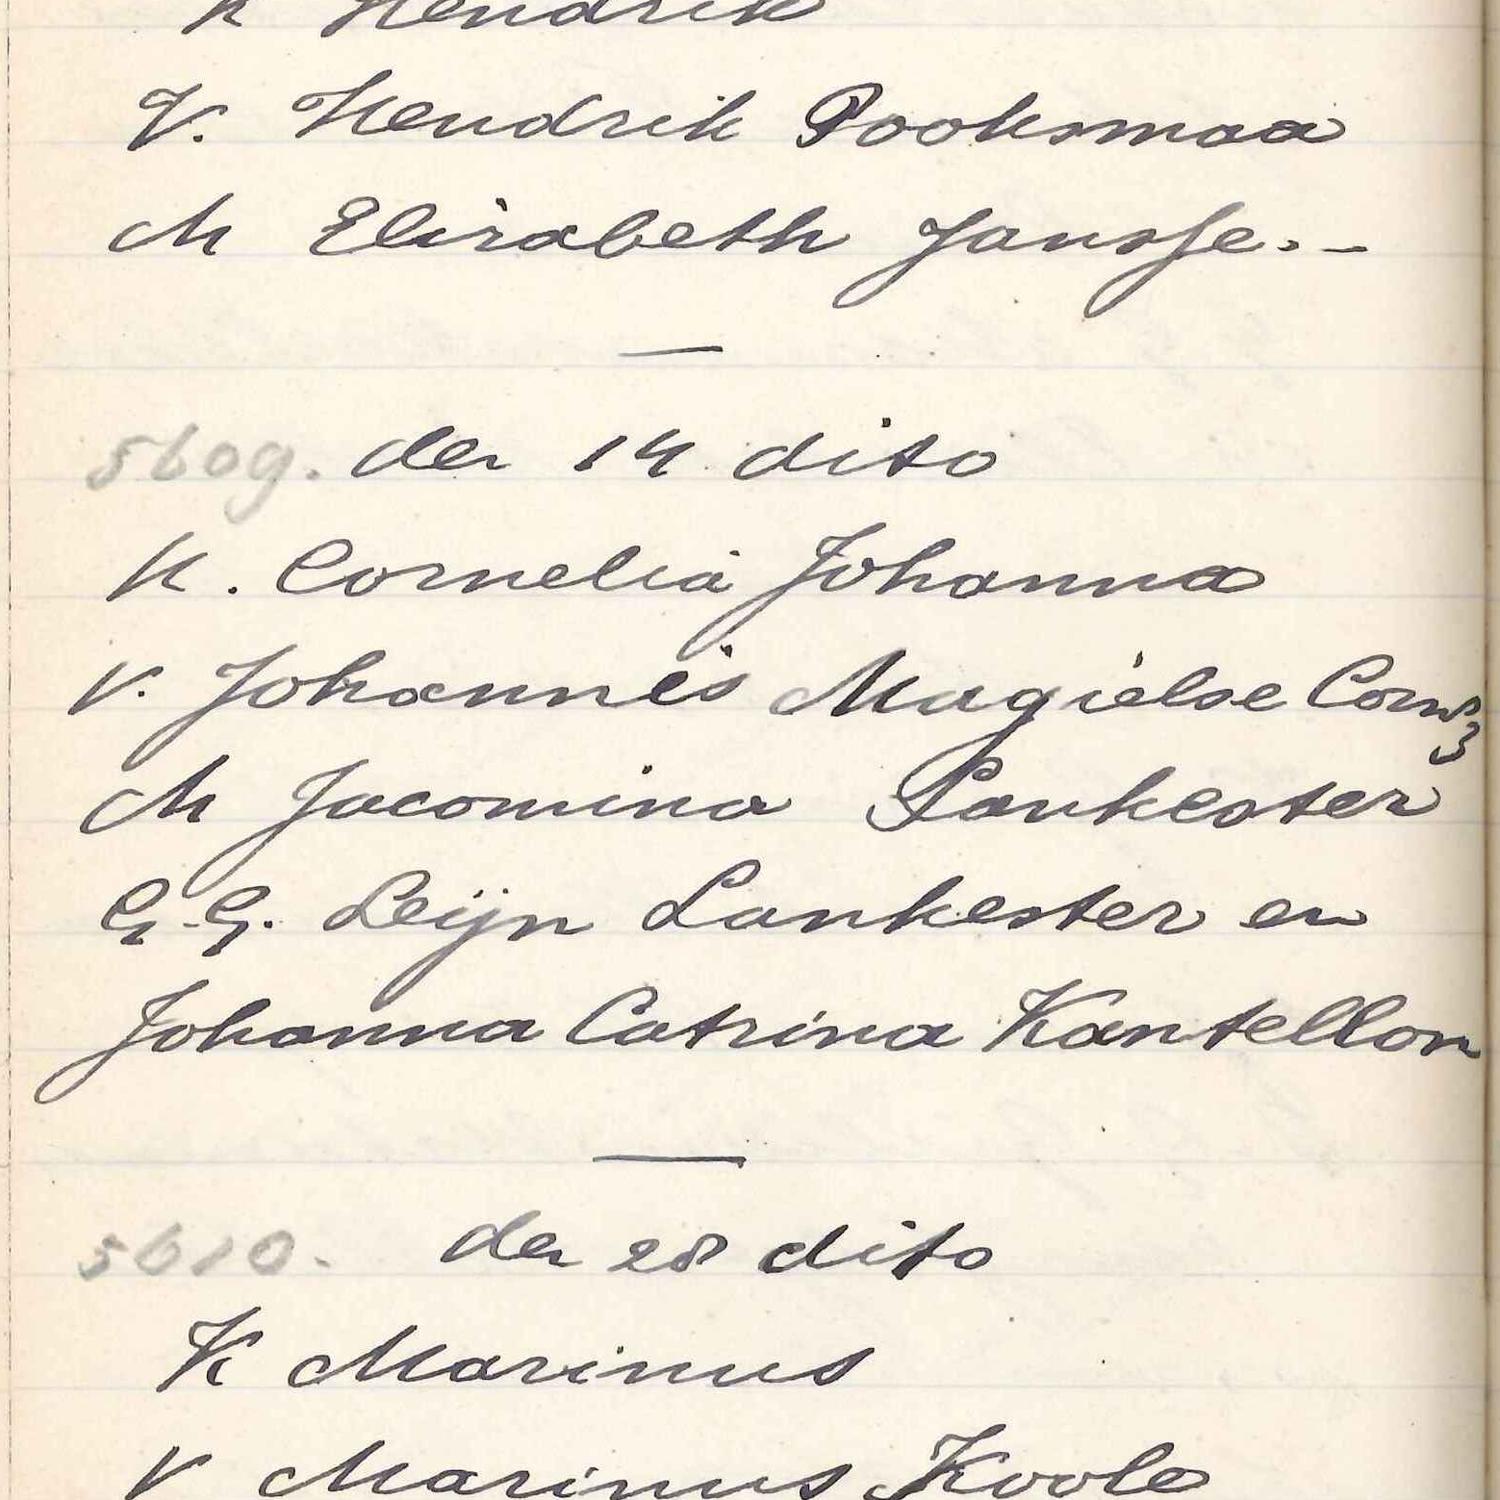 K Hendrik
V. Hendrik Pooksmaa
M Elizabeth Jansse. -
5609. den 14 dito
K. Cornelia Johanna
V. Johannes Magielse Cornsz
M Jacomina Lankester
G. G. Leijn Lankester en
Johanna Catrina Kantellon
5610. den 28 dito
K Marinus
V Marinus Koole